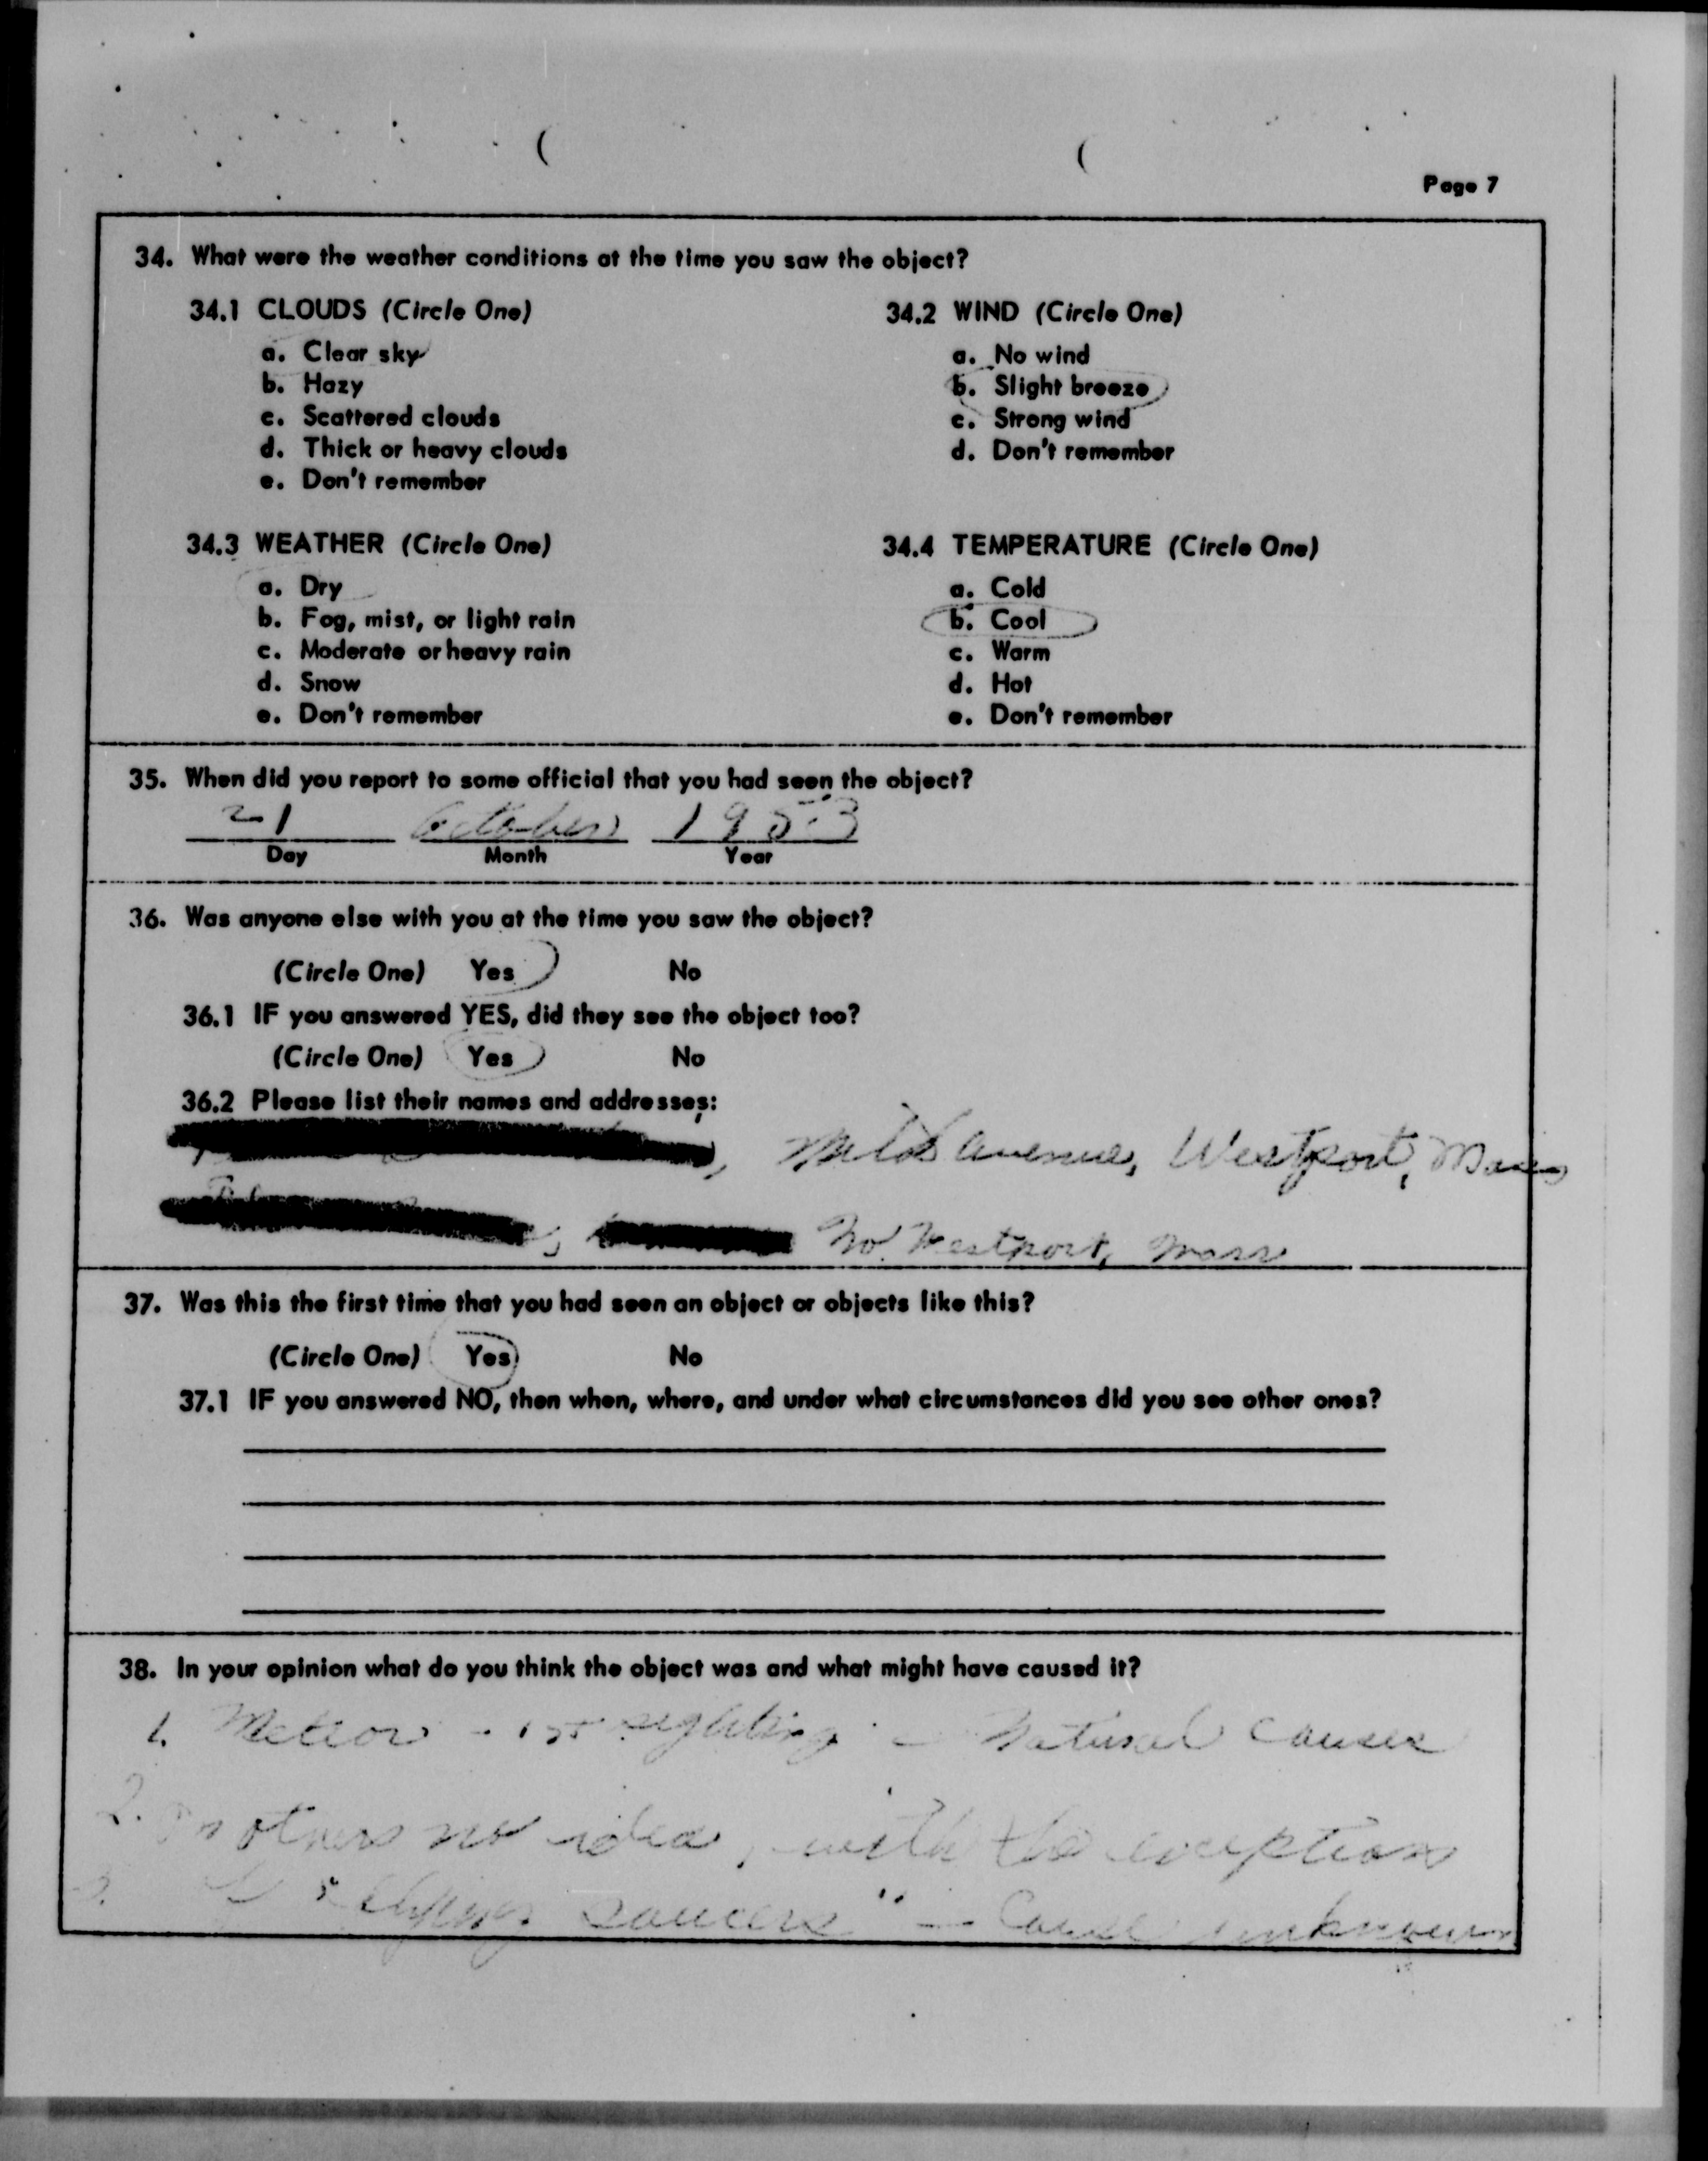 Page 7
34. What were the weather conditions at the time you saw the object?
34.1 CLOUDS (Circle One)
a. Clear sky
b. Hazy
c. Scattered clouds
d. Thick or heavy clouds
e. Don't remember
34.2 WIND (Circle One)
a. No wind
b. Slight breeze
c. Strong wind
d. Don't remember
34.3 WEATHER (Circle One)
a. Dry
b. Fog, mist, or light rain
c. Moderate or heavy rain
d. Snow
e. Don't remember
34.4 TEMPERATURE (Circle One)
a. Cold
b. Cool
c. Warm
d. Hot
e. Don't remember
35. When did you report to some official that you had seen the object?
21 October 1953
Day Month Year
36. Was anyone else with you at the time you saw the object?
(Circle One) Yes No
36.1 IF you answered YES, did they see the object too?
(Circle One) Yes No
36.2 Please list their names and addresses:
avenue, Westport, Mass
No. Westport, Mass
37. Was this the first time that you had seen an object or objects like this?
(Circle One) Yes No
37.1 IF you answered NO, then when, where, and under what circumstances did you see other ones?
38. In your opinion what do you think the object was and what might have caused it?
1. Meteor - 1st sighting - Natural causes
2. On others no idea, with the exception
"flying saucers" - Cause unknown